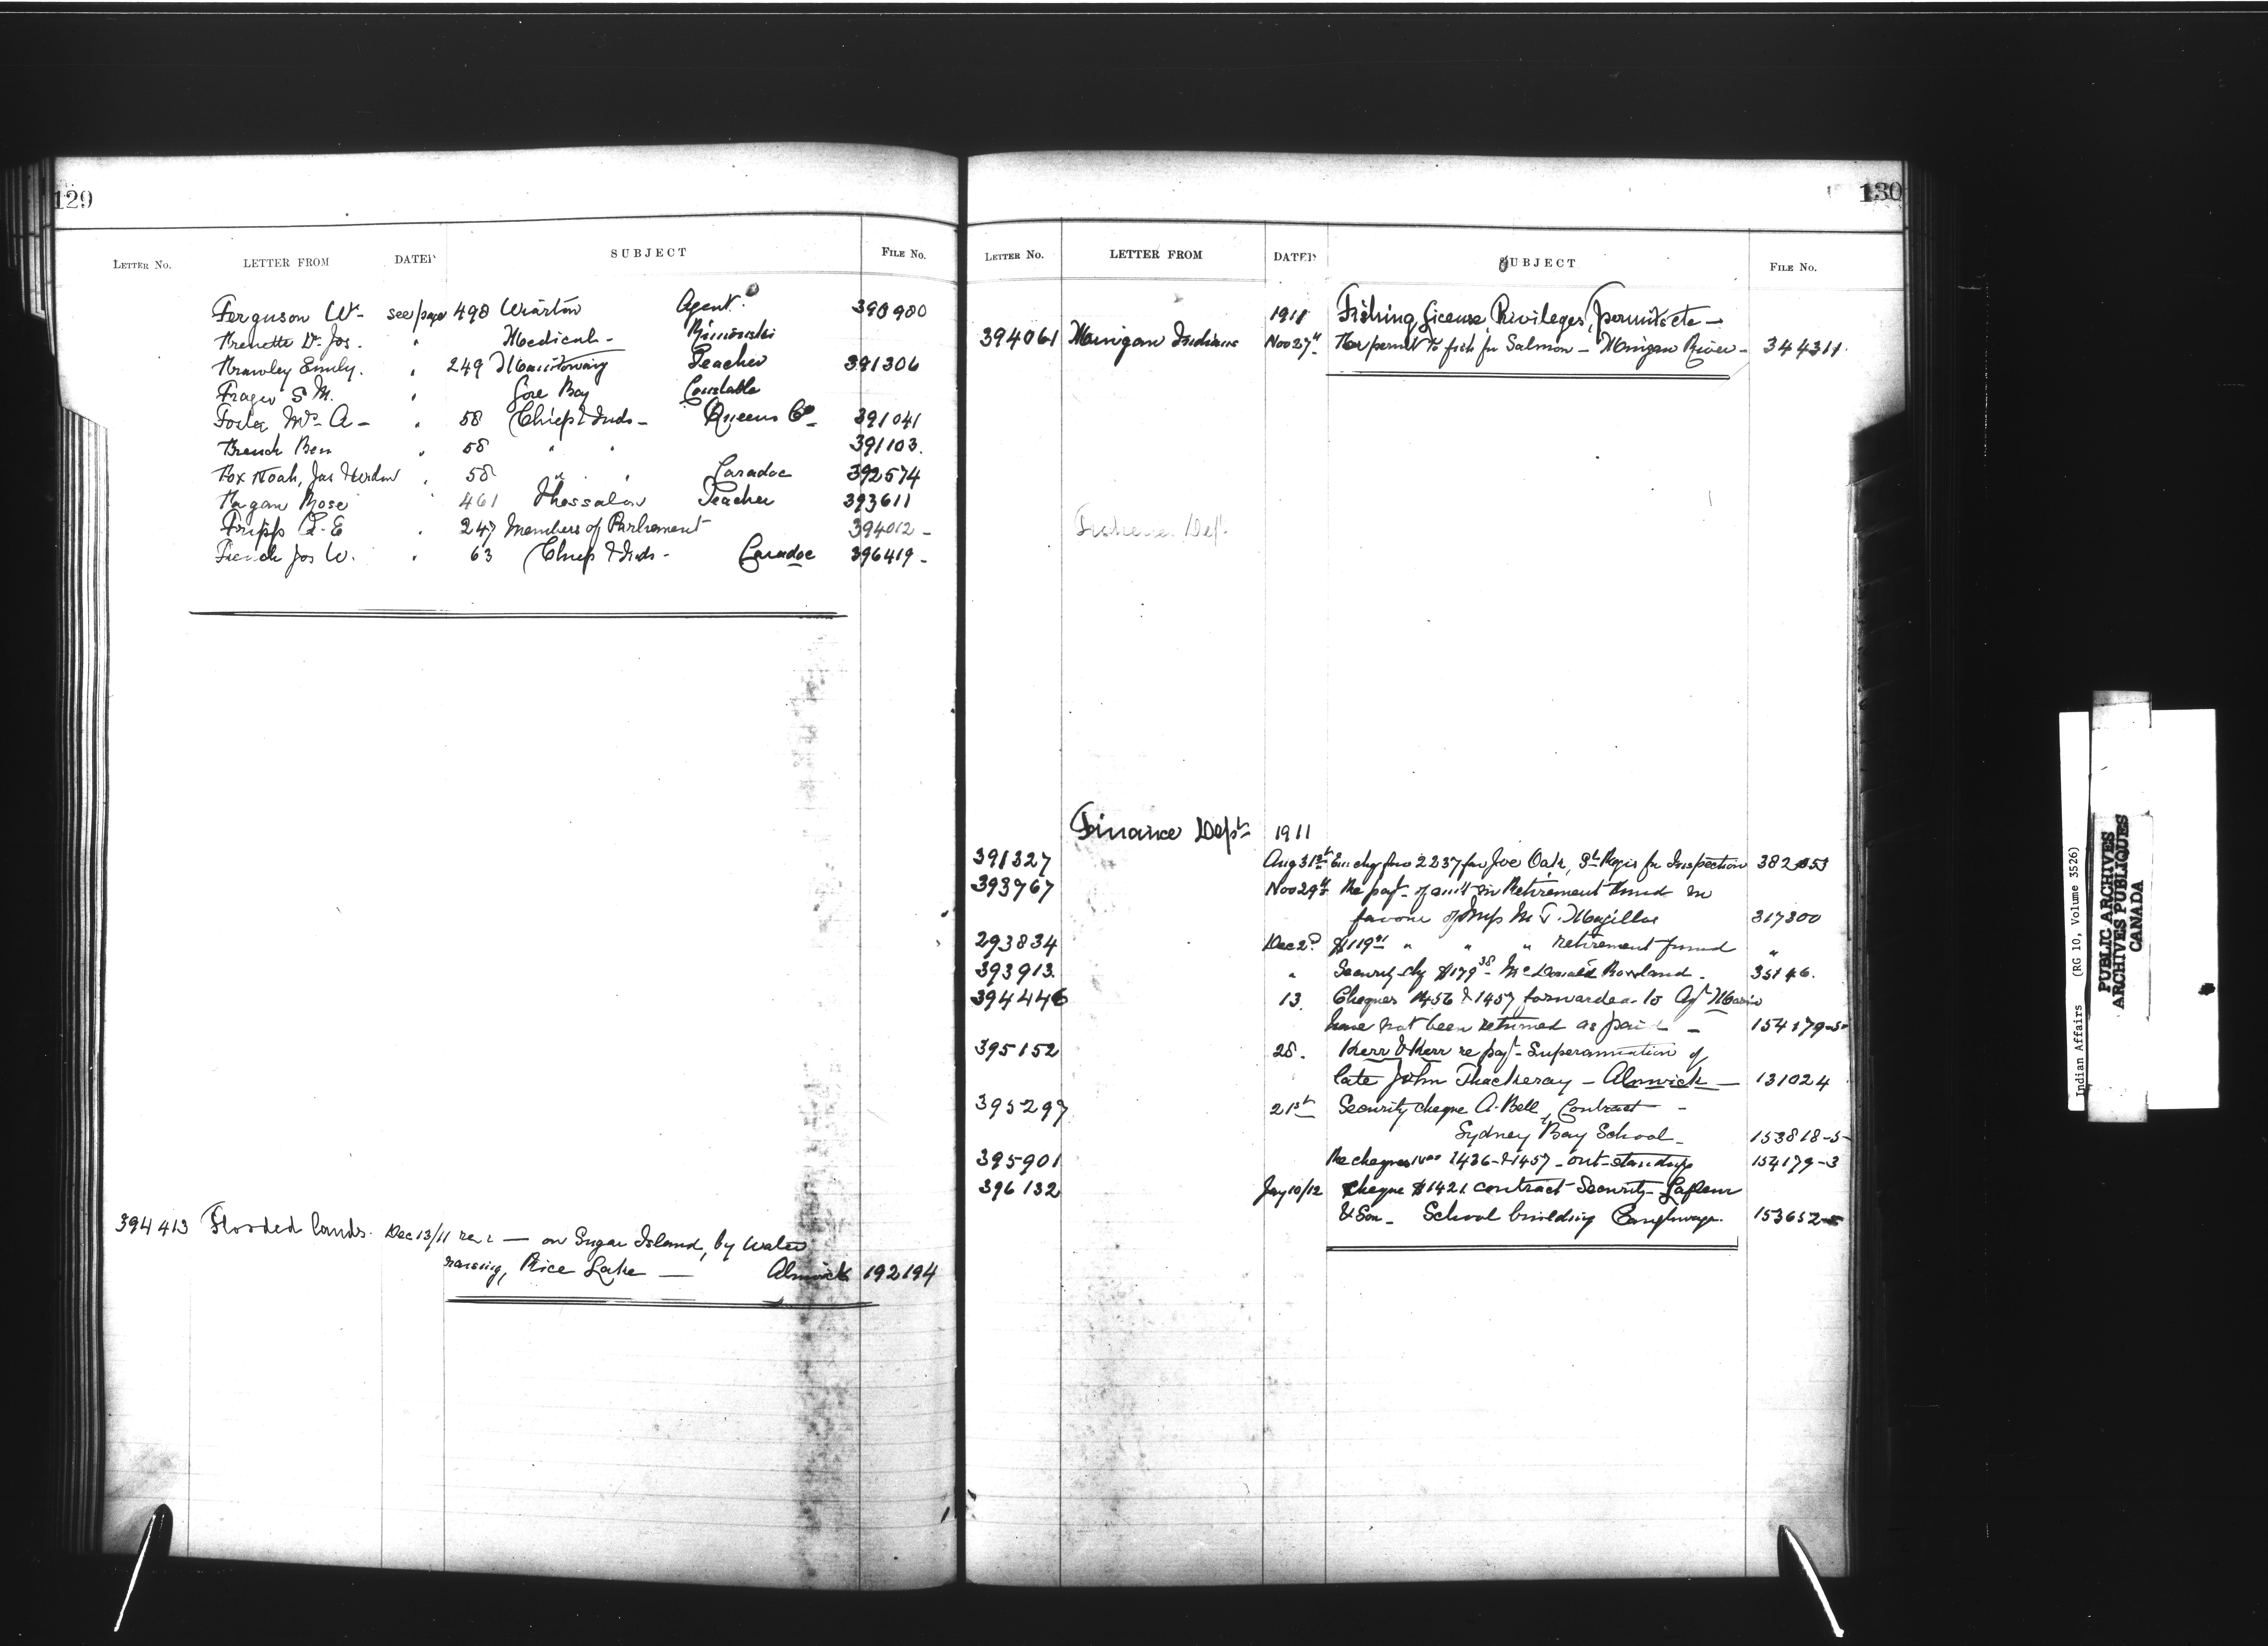 129
LETTER NO. LETTER FROM DATED SUBJECT FILE No.
Ferguson W- see page 498 Wiarton Agent. 390900
Frenette Dr Jos. " Medical - Rimouski
Frawley Emily. " 249 Manitowaning Teacher 391306
Frager S M. " Gore Bay Constable
Foster Mrs A - " 58 Chiefs & Inds - Queens Co - 391041
French Ben " 58 " " 391103.
Fox Noah, Jas " 58 " " Caradoc 392574
Fagan Rose " 461 Thessalon Teacher 393611
Fripp G. E " 247 Members of Parliament 394012 -
French Jos W. " 63 Chiefs & Inds - Caradoc 396419 -
394413 Flooded lands. Dec 13/11 — on Sugar Island, by water
raising, Rice Lake — Alnwick 192194
130
LETTER NO. LETTER FROM DATED SUBJECT FILE No.
1911 Fishing License, Privileges, permits etc —
394061 Mingan Indians Nov 27th For permit to fish for Salmon - Mingan River - 344311.
Fisheries Dept.
Finance Dept- 1911
391327 Aug 31st chq for 2237 fav Joe Oak, St Regis for Inspection 382
393767 Nov 29th Re payt- of amt in Retirement Fund in
favour of M T. 317300
293834 Dec 2nd $119 " " " retirement fund "
393913. " Security chq $179 38 - McDonald Rowland. 35146.
394446 13. Cheques 1456 & 1457 forwarded to Agt
have not been returned as paid - 154179-5-
395152 28. Kerr & Kerr re payt- Superannuation of
late John Thackeray - Alnwick - 131024
395297 21st Security cheque A. Bell, Contract -
Sydney Bay School - 153818-5-
395901 Re cheques Nos 1436 & 1457 - out-standing 154179-3
396132 Jany 10/12 Cheque $1421 contract Security - Lafleur
& Son - School building Caughnawaga. 153652-5
Indian Affairs (RG 10, Volume 3526)
PUBLIC ARCHIVES
ARCHIVES PUBLIQUES
CANADA